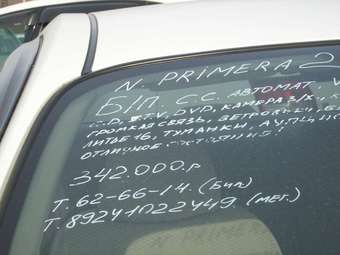 N. PRIMERA 2
Б/П. С.С. АВТОМАТ V
CD, TV, DVD, КАМЕРА З/Х,
ГРОМКАЯ СВЯЗЬ, ВЕТРОВИКИ,
ЛИТЬЕ 16, ТУМАНКИ,
ОТЛИЧНОЕ СОСТОЯНИЕ!
342.000.р
Т. 62-66-14. (БИЛ)
Т. 89241022449. (МЕГ.)